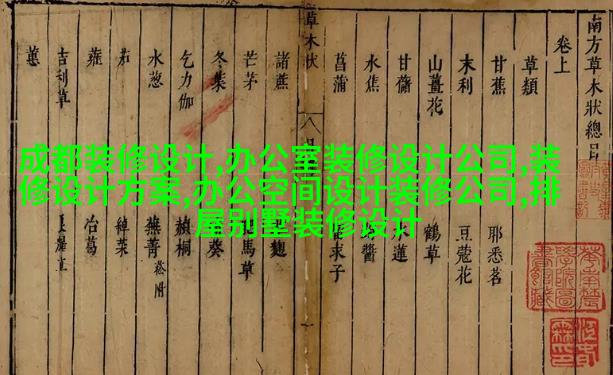 南方草木狀總目
卷上
草類
甘蕉 耶悉茗
末利 豆蔻花
山薑花 鶴草
甘藷 蓮
水蕉 醬
菖蒲 求子
草木狀
諸蔗 麴
芒茅 馬草
冬葉 葵
乞力伽 赬桐
水葱 蕪菁 菘附
茄 綽菜
蕹 冶葛
吉利草
蕙
成都装修设计,办公室装修设计公司,装
修设计方案,办公空间设计装修公司,排
屋别墅装修设计